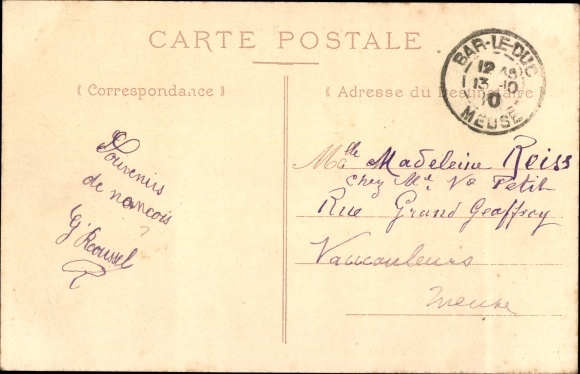 CARTE POSTALE
Correspondance
Adresse du Destinataire
BAR-LE-DUC
12
13 10
10
MEUSE
Souvenirs
de nancois
G Roussel
R
Melle Madeleine Reiss
Chez Me Ve Petit
Rue Grand Geoffroy
Vaucouleurs
Meuse